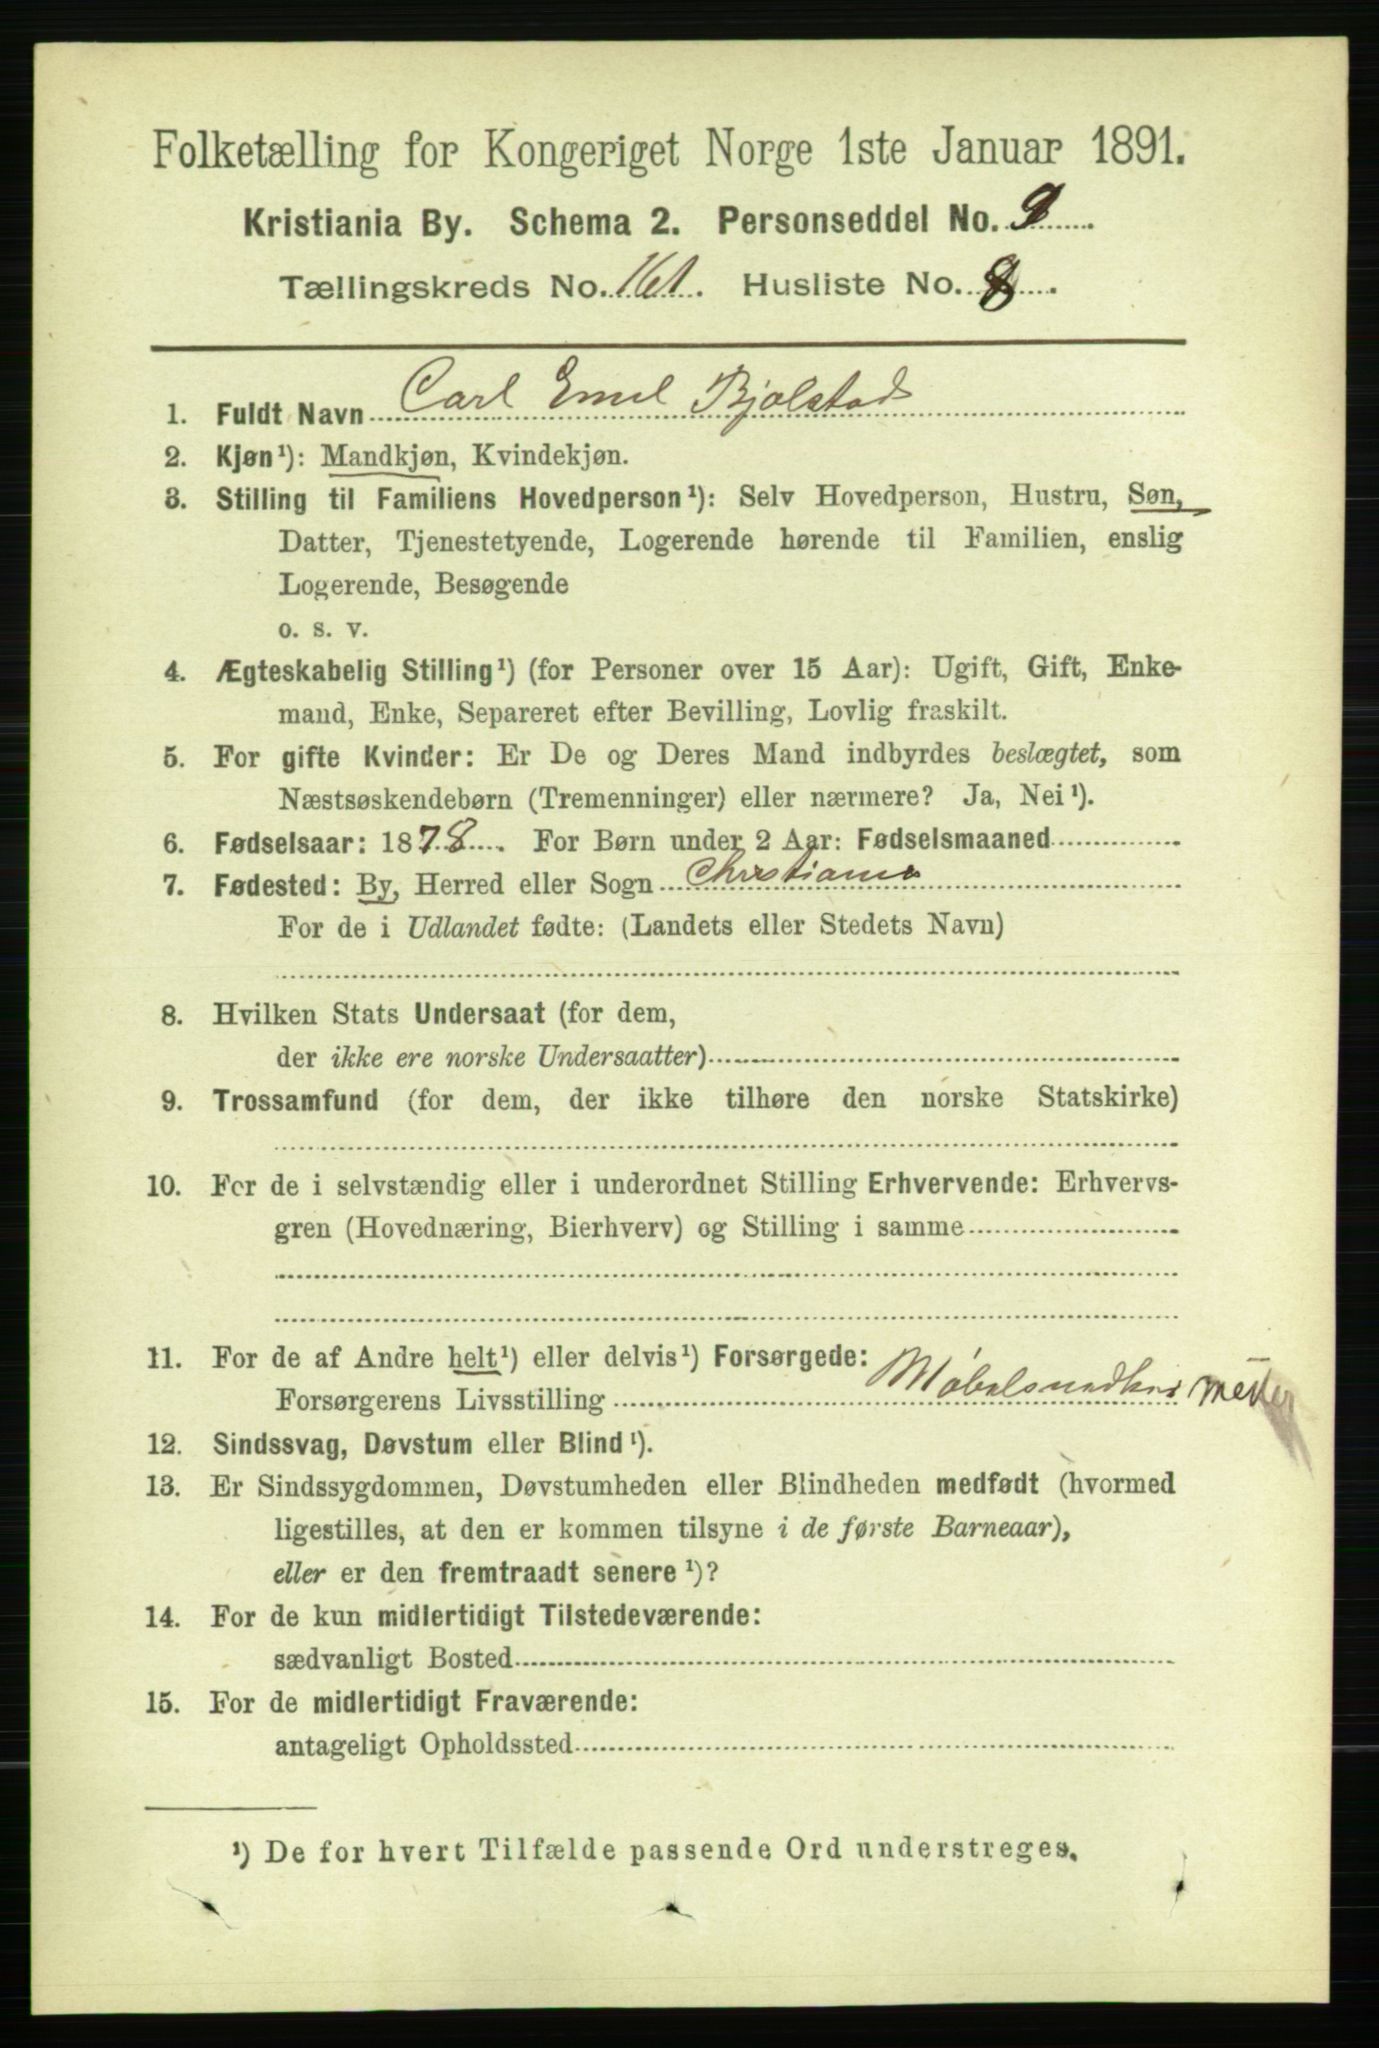 Folketælling for Kongeriget Norge 1ste Januar 1891.
Kristiania By. Schema 2. Personseddel No. 9
Tællingskreds No. 161. Husliste No. 8.
1. Fuldt Navn Carl Emil Bjølstad
2. Kjøn¹): Mandkjøn, Kvindekjøn.
3. Stilling til Familiens Hovedperson¹): Selv Hovedperson, Hustru, Søn,
Datter, Tjenestetyende, Logerende hørende til Familien, enslig
Logerende, Besøgende
o. s. v.
4. Ægteskabelig Stilling¹) (for Personer over 15 Aar): Ugift, Gift, Enke-
mand, Enke, Separeret efter Bevilling, Lovlig fraskilt.
5. For gifte Kvinder: Er De og Deres Mand indbyrdes beslægtet, som
Næstsøskendebørn (Tremenninger) eller nærmere? Ja, Nei¹).
6. Fødselsaar: 1878. For Børn under 2 Aar: Fødselsmaaned
7. Fødested: By, Herred eller Sogn Christiania
For de i Udlandet fødte: (Landets eller Stedets Navn)
8. Hvilken Stats Undersaat (for dem,
der ikke ere norske Undersaatter)
9. Trossamfund (for dem, der ikke tilhøre den norske Statskirke)
10. For de i selvstændig eller i underordnet Stilling Erhvervende: Erhvervs-
gren (Hovednæring, Bierhverv) og Stilling i samme
11. For de af Andre helt¹) eller delvis¹) Forsørgede:
Forsørgerens Livsstilling Møbelsnedker mester
12. Sindssvag, Døvstum eller Blind¹).
13. Er Sindssygdommen, Døvstumheden eller Blindheden medfødt (hvormed
ligestilles, at den er kommen tilsyne i de første Barneaar),
eller er den fremtraadt senere¹)?
14. For de kun midlertidigt Tilstedeværende:
sædvanligt Bosted
15. For de midlertidigt Fraværende:
antageligt Opholdssted
¹) De for hvert Tilfælde passende Ord understreges.